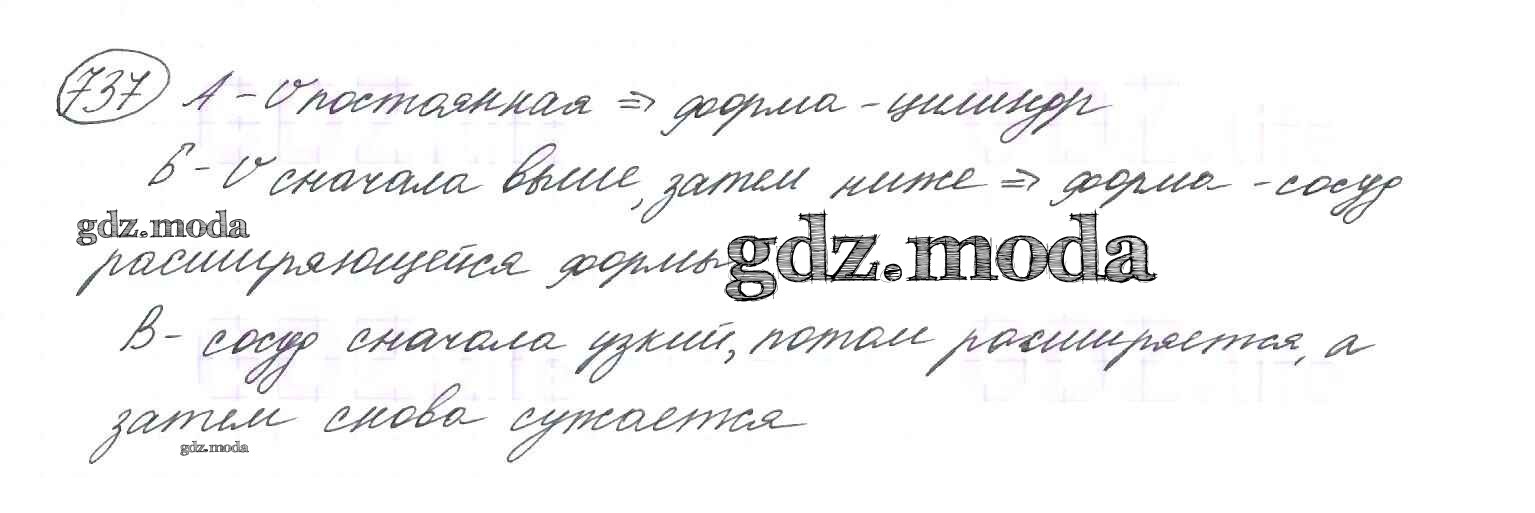 737 А - υ постоянная => форма - цилиндр
Б - υ сначала выше, затем ниже => форма - сосуд
gdz.moda
расширяющейся формы
gdz.moda
В - сосуд сначала узкий, потом расширяется, а
затем снова сужается
gdz.moda